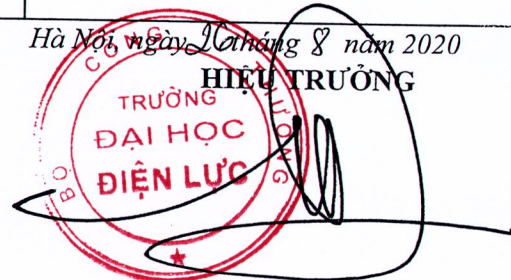 Hà Nội, ngày 26 tháng 8 năm 2020
HIỆU TRƯỞNG
BỘ CÔNG THƯƠNG
TRƯỜNG
ĐẠI HỌC
ĐIỆN LỰC